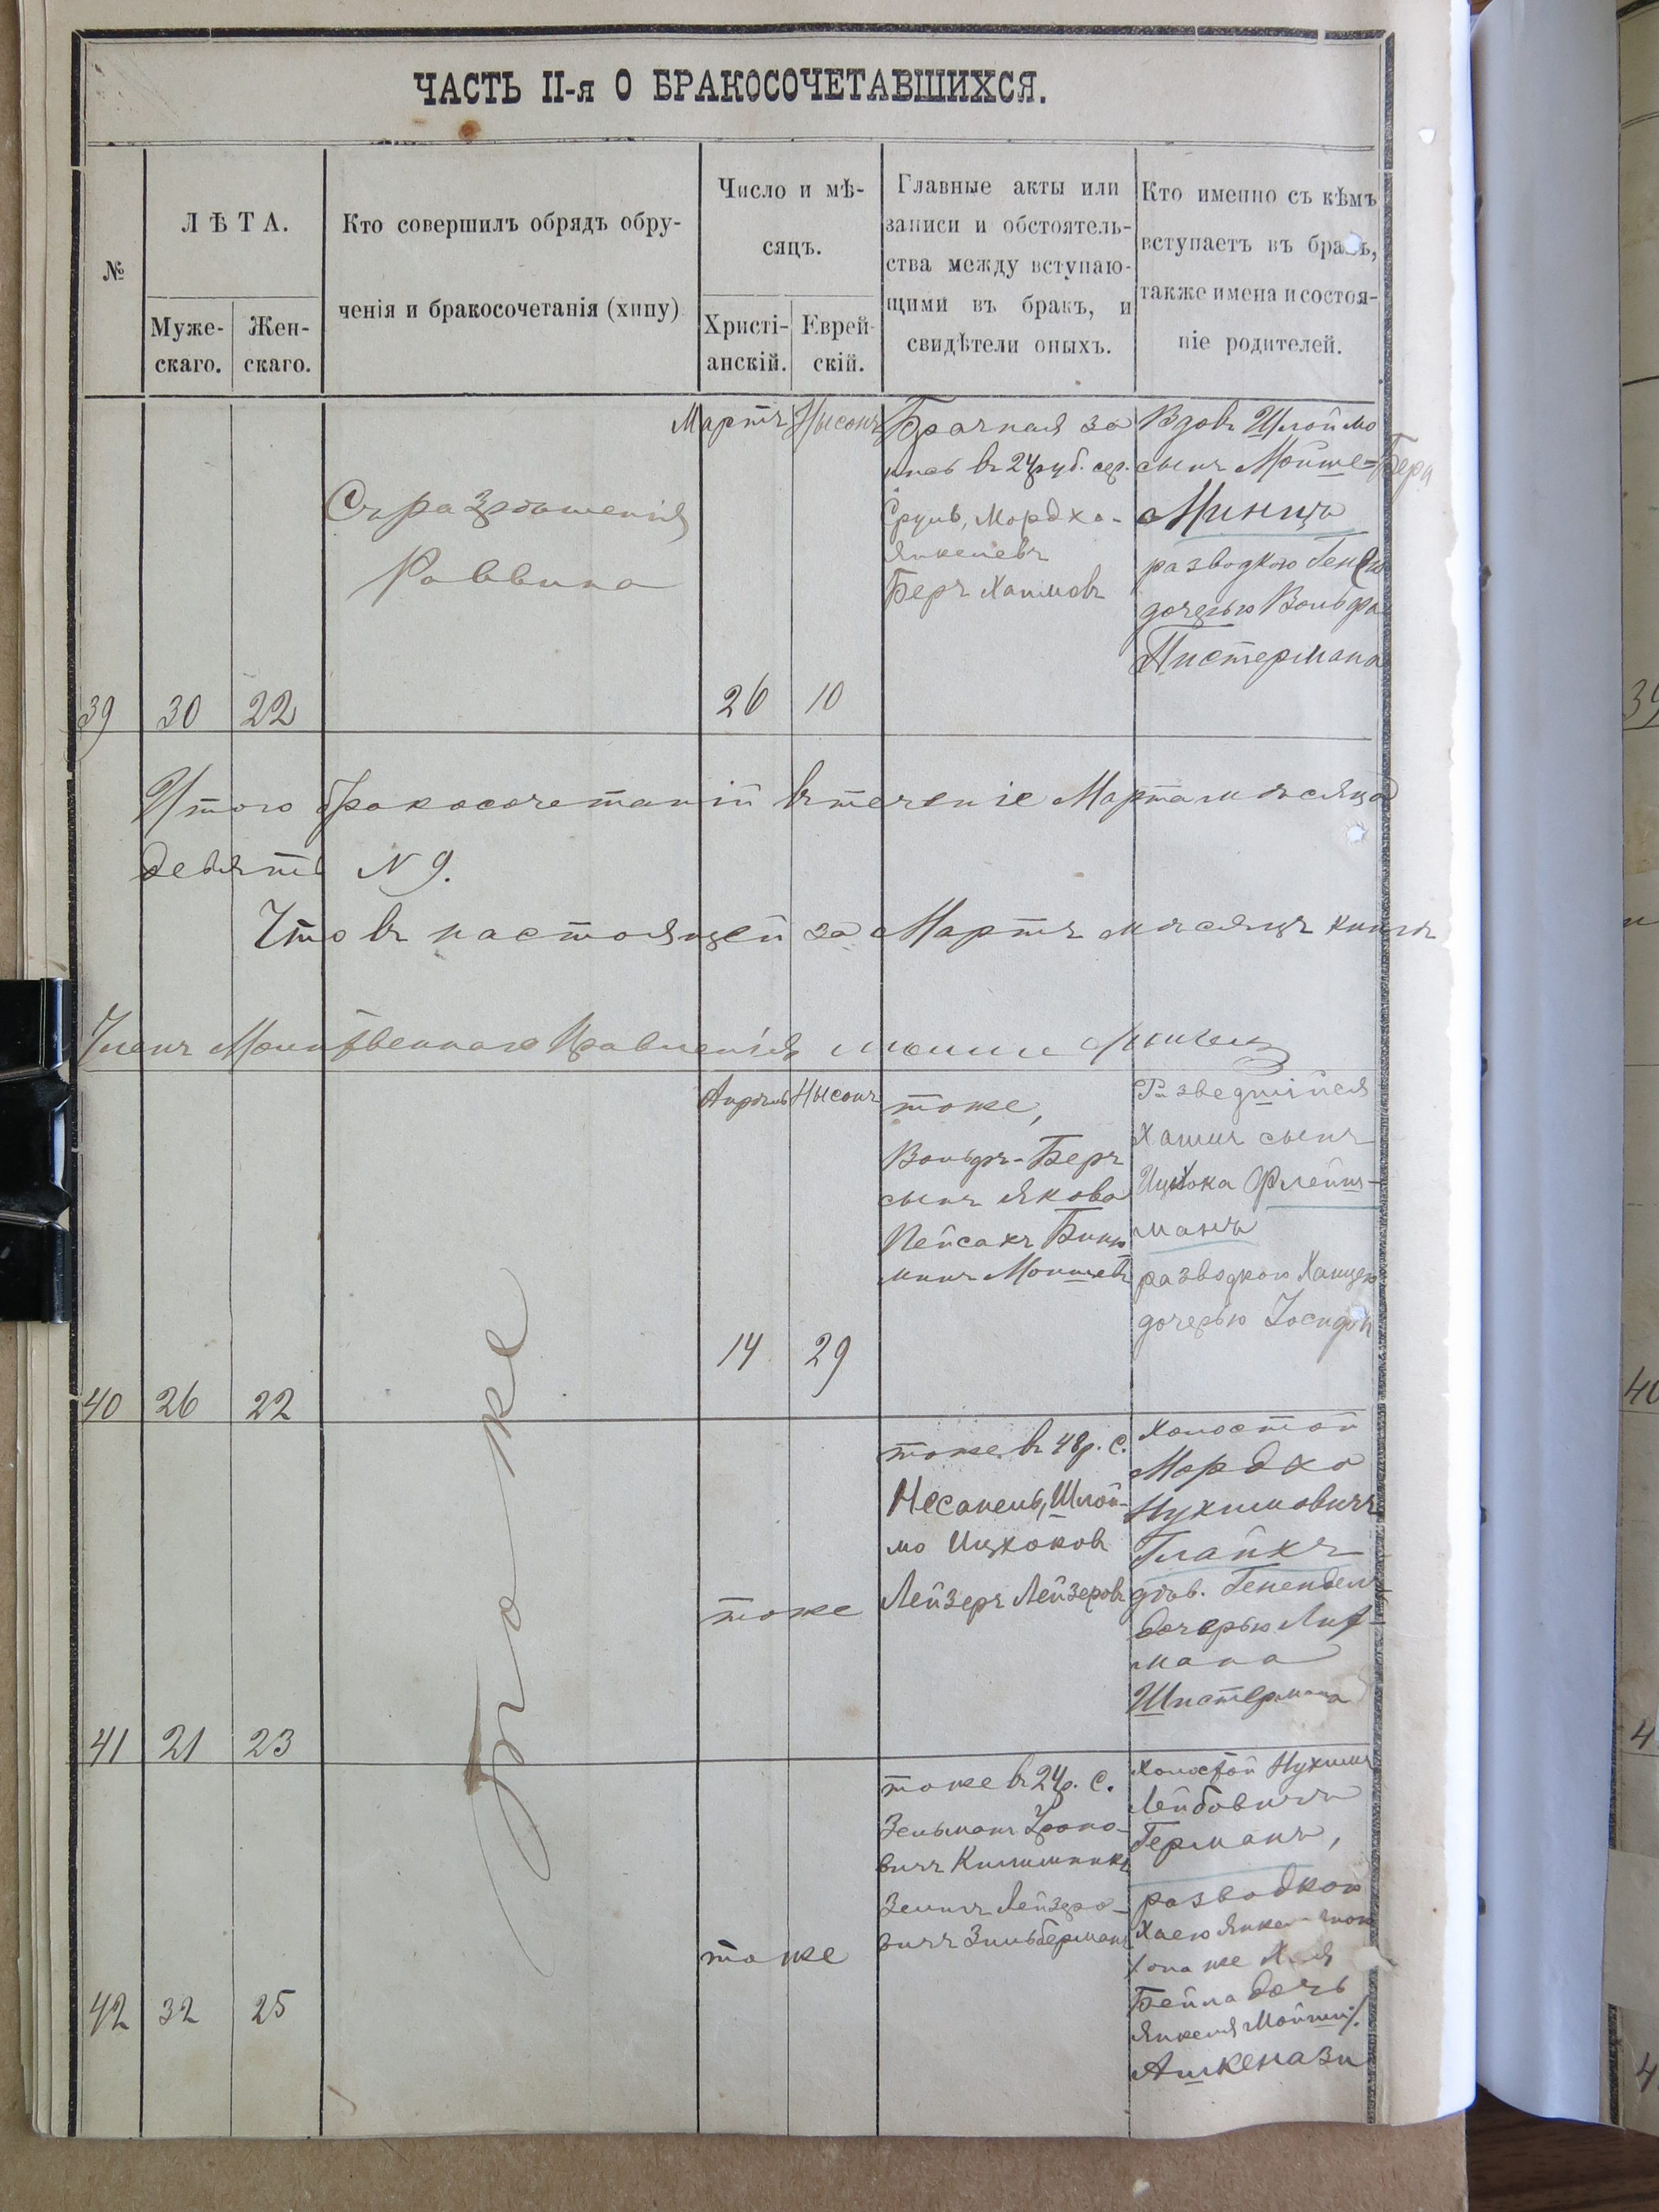 ЧАСТЬ II-я О БРАКОСОЧЕТАВШИХСЯ.
№
ЛѢТА.
Муже-
скаго.
Жен-
скаго.
Кто совершилъ обрядъ обру-
ченія и бракосочетанія (хипу)
Число и мѣ-
сяцъ.
Христі-
анскій.
Еврей-
скій.
Главные акты или
записи и обстоятель-
ства между вступаю-
щими въ бракъ, и
свидѣтели оныхъ.
Кто именно съ кѣмъ
вступаетъ въ бракъ,
также имена и состоя-
ніе родителей.
39
30
22
Съ разрѣшенія
Раввина
Мартъ
26
Нысонъ
10
Брачная за
пись въ 24 руб. сер.
Сруль, Мордко-
Янкелевъ
Беръ Хаимовъ
Вдовъ Шлоймо
сынъ Мойше-Бера
Минцъ
разводкою Генею
дочерью Вольфа
Пистермана
Итого бракосочетаній въ теченіе Марта мѣсяца
девять N 9.
Что въ настоящей за Мартъ мѣсяцъ книгѣ
Членъ Молитвеннаго Правленія
40
26
22
тоже
Апрѣль
14
Нысонъ
29
тоже,
Вольфъ-Беръ
сынъ Якова
Пейсахъ Биню
минъ Мошевъ
Разведшійся
Хаимъ сынъ
Ицхока Флейш-
манъ
разводкою Ханцею
дочерью Іосифа
41
21
23
тоже
тоже въ 48 р. с.
Несанель, Шлой-
мо Ицхоковъ
Лейзеръ Лейзеровъ
Холостой
Мордко
Нухимовичъ
Глайхъ
дѣв. Генендель
дочерью Лип-
мана
Шистермана
42
32
25
тоже
тоже въ 24 р. с.
Зельманъ
вичъ
Зелигъ Лейзеро-
вичъ Зильберманъ
Холостой Нухимъ
Лейбовичъ
Германъ,
разводкою
Хаею
/она же Хая
Бейла дочь
Янкеля Мойши/.
Ашкенази